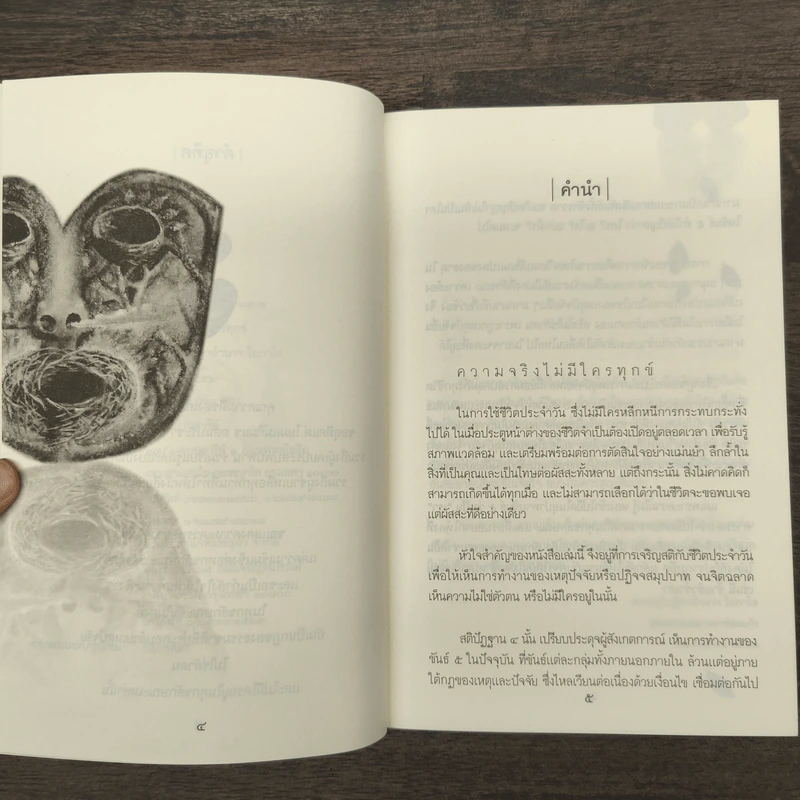 ๔
| คำนำ |
ความจริงไม่มีใครทุกข์
ในการใช้ชีวิตประจำวัน ซึ่งไม่มีใครหลีกหนีการกระทบกระทั่ง
ไปได้ ในเมื่อประตูหน้าต่างของชีวิตจำเป็นต้องเปิดอยู่ตลอดเวลา เพื่อรับรู้
สภาพแวดล้อม และเตรียมพร้อมต่อการตัดสินใจอย่างแม่นยำ ลึกล้ำใน
สิ่งที่เป็นคุณและเป็นโทษต่อผัสสะทั้งหลาย แต่ถึงกระนั้น สิ่งไม่คาดคิดก็
สามารถเกิดขึ้นได้ทุกเมื่อ และไม่สามารถเลือกได้ว่าในชีวิตจะขอพบเจอ
แต่ผัสสะที่ดีอย่างเดียว
หัวใจสำคัญของหนังสือเล่มนี้ จึงอยู่ที่การเจริญสติกับชีวิตประจำวัน
เพื่อให้เห็นการทำงานของเหตุปัจจัยหรือปฏิจจสมุปบาท จนจิตฉลาด
เห็นความไม่ใช่ตัวตน หรือไม่มีใครอยู่ในนั้น
สติปัฏฐาน ๔ นั้น เปรียบประดุจผู้สังเกตการณ์ เห็นการทำงานของ
ขันธ์ ๕ ในปัจจุบัน ที่ขันธ์แต่ละกลุ่มทั้งภายนอกภายใน ล้วนแต่อยู่ภาย
ใต้กฎของเหตุและปัจจัย ซึ่งไหลเวียนต่อเนื่องด้วยเงื่อนไข เชื่อมต่อกันไป
๕